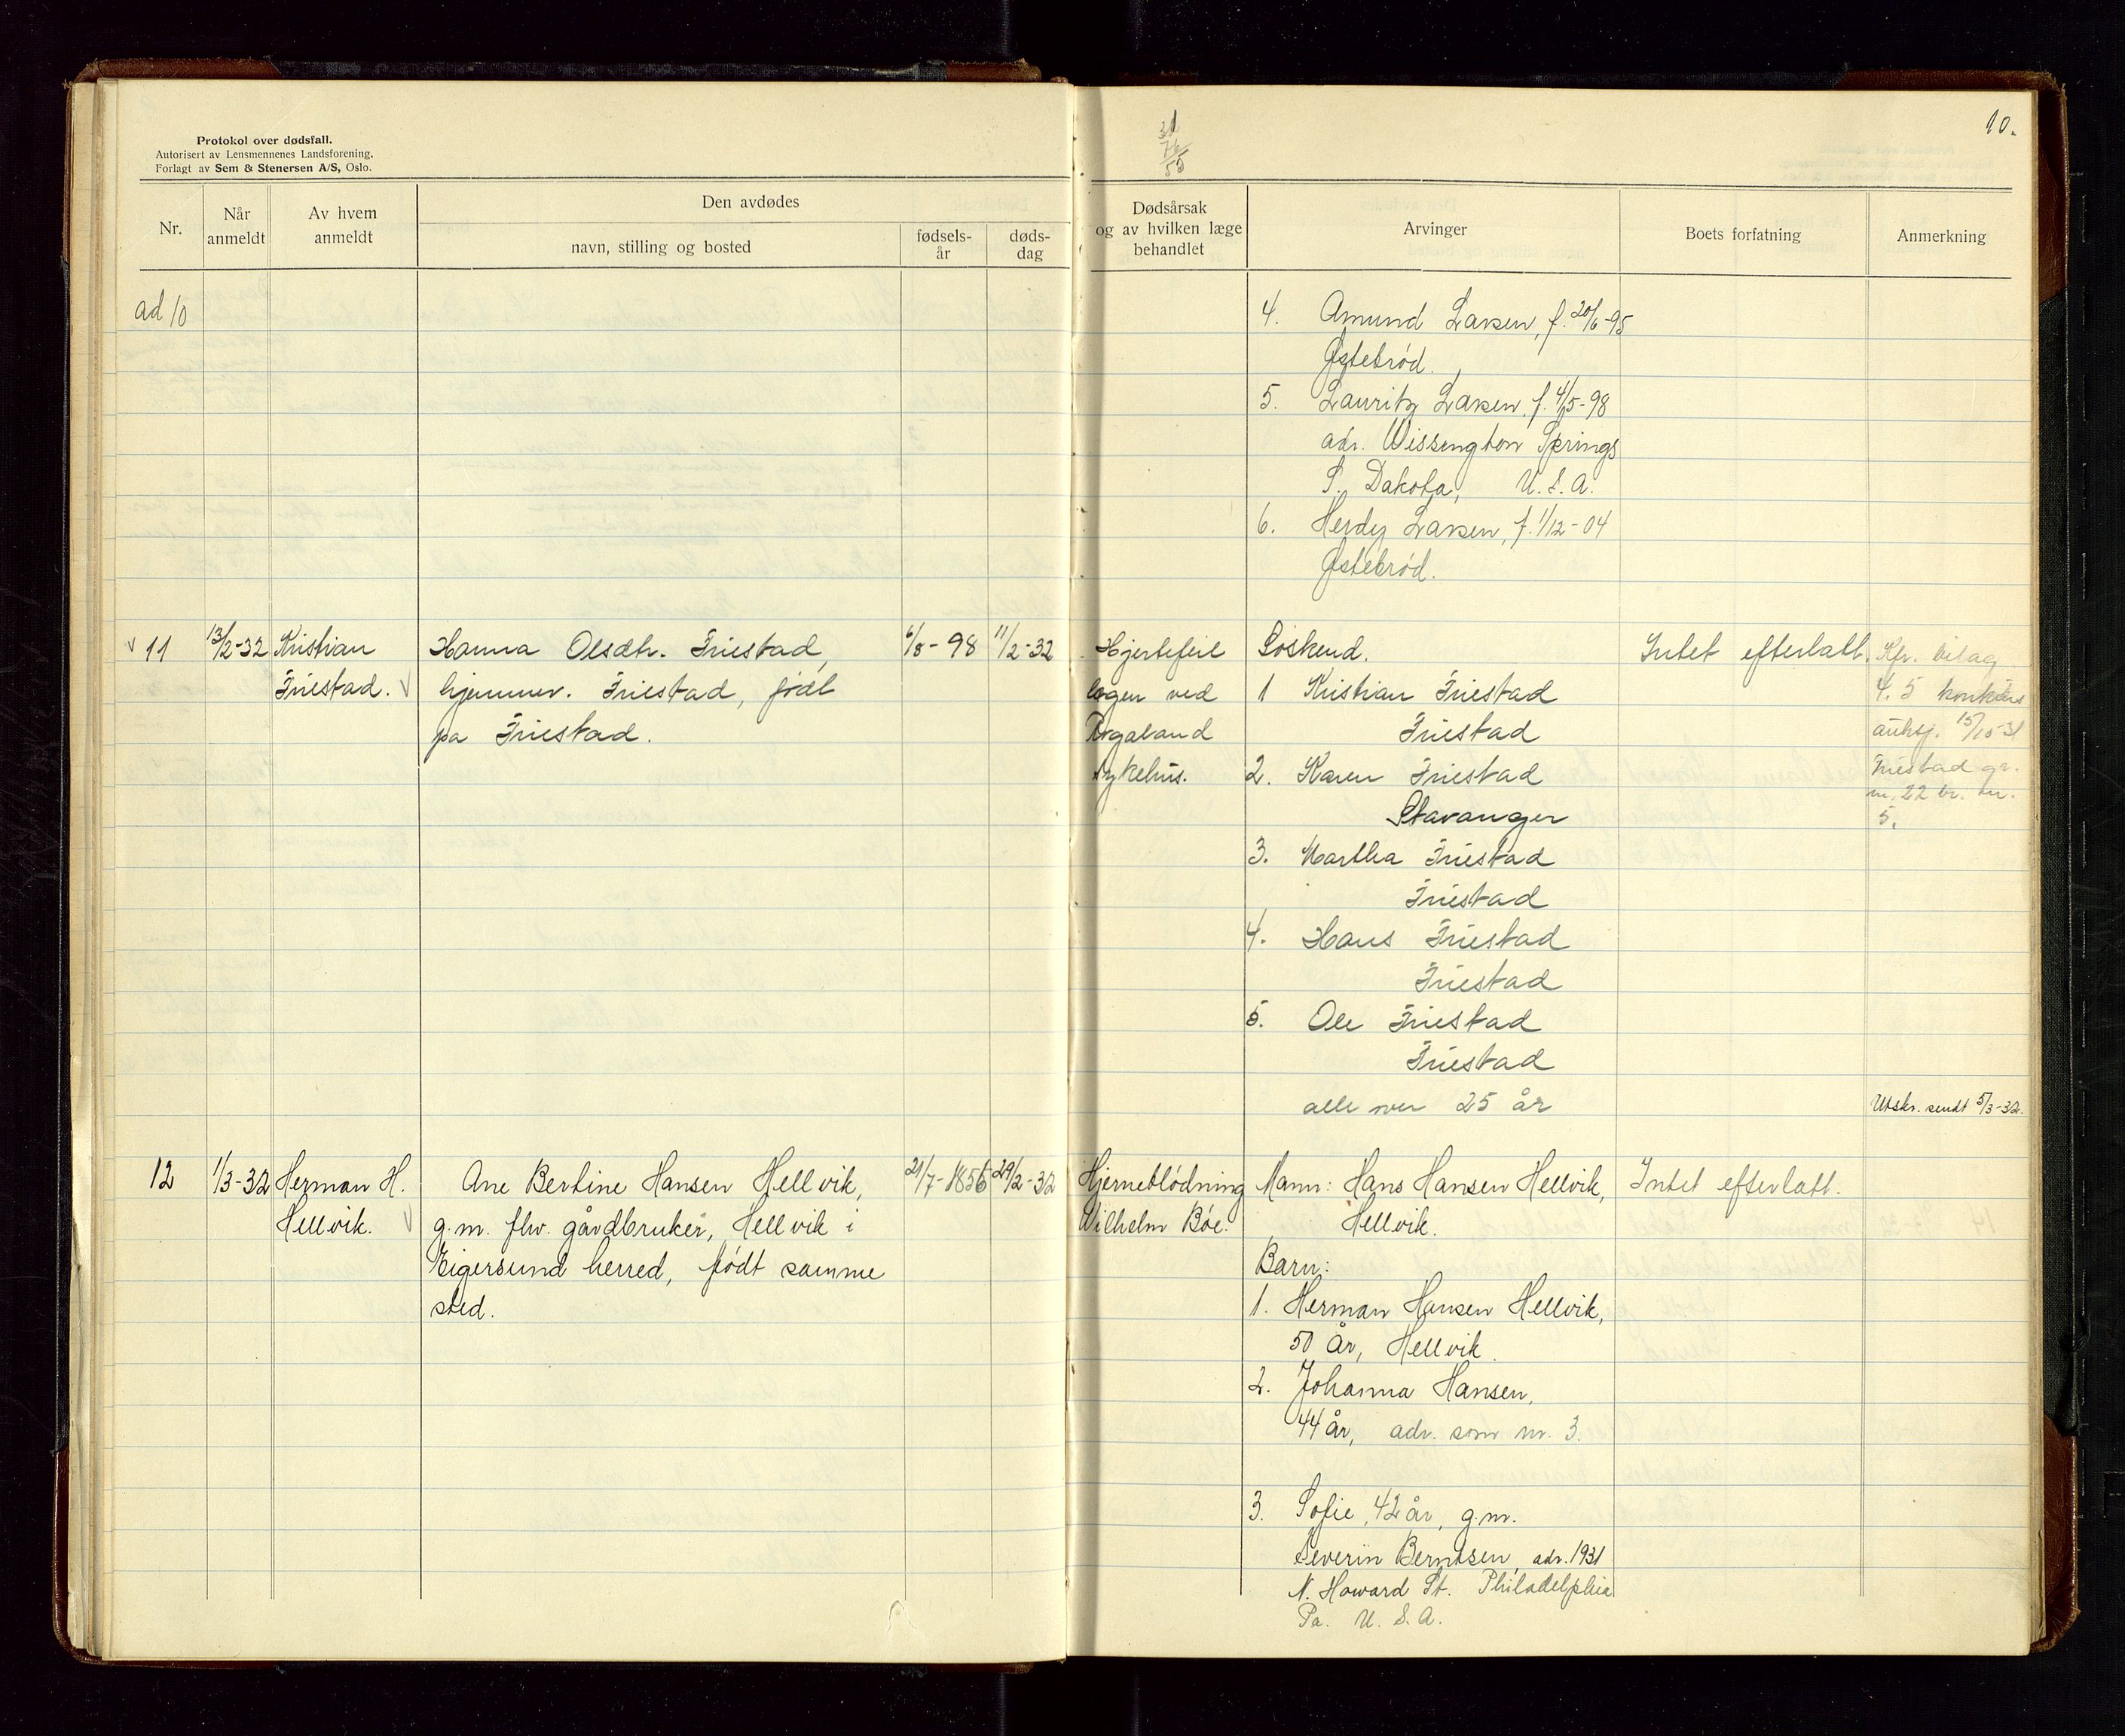 Protokol over dødsfall.
Autorisert av Lensmennenes Landsforening.
Forlagt av Sem & Stenersen A/S, Oslo.
Nr.
Når anmeldt
Av hvem anmeldt
Den avdødes
navn, stilling og bosted
fødsels-
år
døds-
dag
ad 10
11
13/2-32
Kristian
Friestad.
Hanna Olsdtr. Friestad,
hjemmev. Friestad, født
på Friestad.
6/8-98
11/2-32
12
1/3-32
Herman H.
Hellvik.
Ane Bertine Hansen Hellvik,
g.m. fhv. gårdbruker, Hellvik i
Eigersund herred, født samme
sted.
21/7-1856
29/2-32
31
76
55
10.
Dødsårsak
og av hvilken læge
behandlet
Arvinger
Boets forfatning
Anmerkning
4. Amund Larsen, f. 20/6-95
Østebrød.
5. Lauritz Larsen, f. 4/5-98
adr. Wissengton Springs
S. Dakota, U.S.A.
6. Herdy Larsen, f. 1/12-04
Østebrød.
Hjertefeil
lægen ved
Rogaland
sykehus.
Søskend.
1 Kristian Friestad
Friestad
2. Karen Friestad
Stavanger
3. Martha Friestad
Friestad
4. Hans Friestad
Friestad
5. Ole Friestad
Friestad
alle over 25 år
Intet efterlatt.
Kfr. bilag
4.5 konkurs
auksj. 15/10-31
Friestad gr.
nr. 22 br. nr.
5.
Utskr. sendt 5/3-32.
Hjerneblødning
Wilhelm Bøe.
Mann: Hans Hansen Hellvik,
Hellvik.
Barn:
1. Herman Hansen Hellvik,
50 år, Hellvik.
2. Johanna Hansen,
44 år, adr. som nr. 3.
3. Sofie, 42 år, g.m.
Severin Berntsen, adr. 1931
N. Howard St. Philadelphia
Pa. U.S.A.
Intet efterlatt.